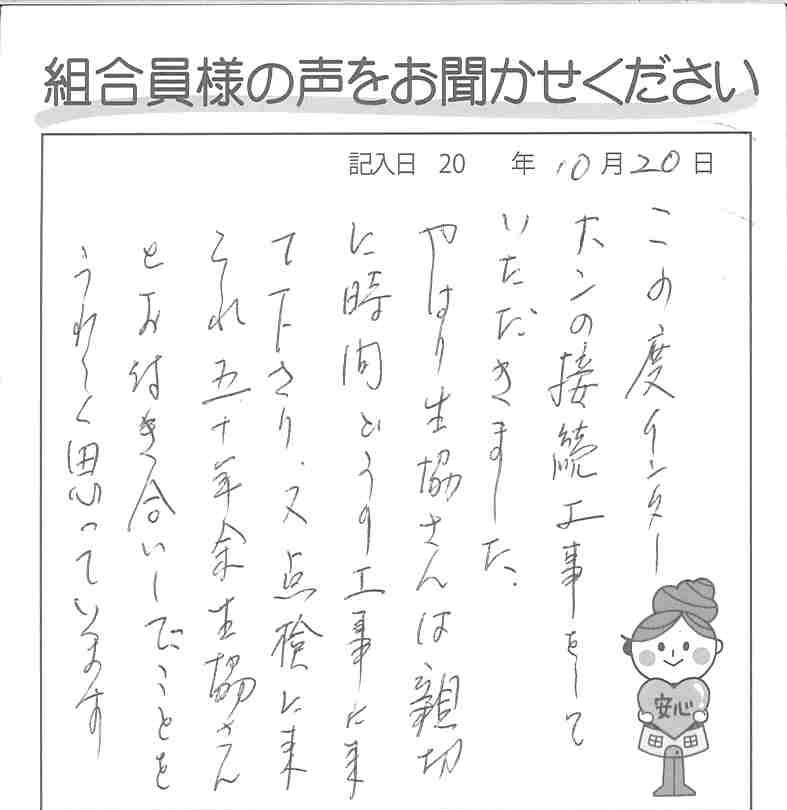 組合員様の声をお聞かせください
記入日 20 年 10月20日
この度インター
ホンの接続工事をして
いただきました。
やはり生協さんは親切
に時間どうり工事に来
て下さり、又点検に来
それ五十年余生協さん
とお付き合いしてことを
うれしく思っています
安心